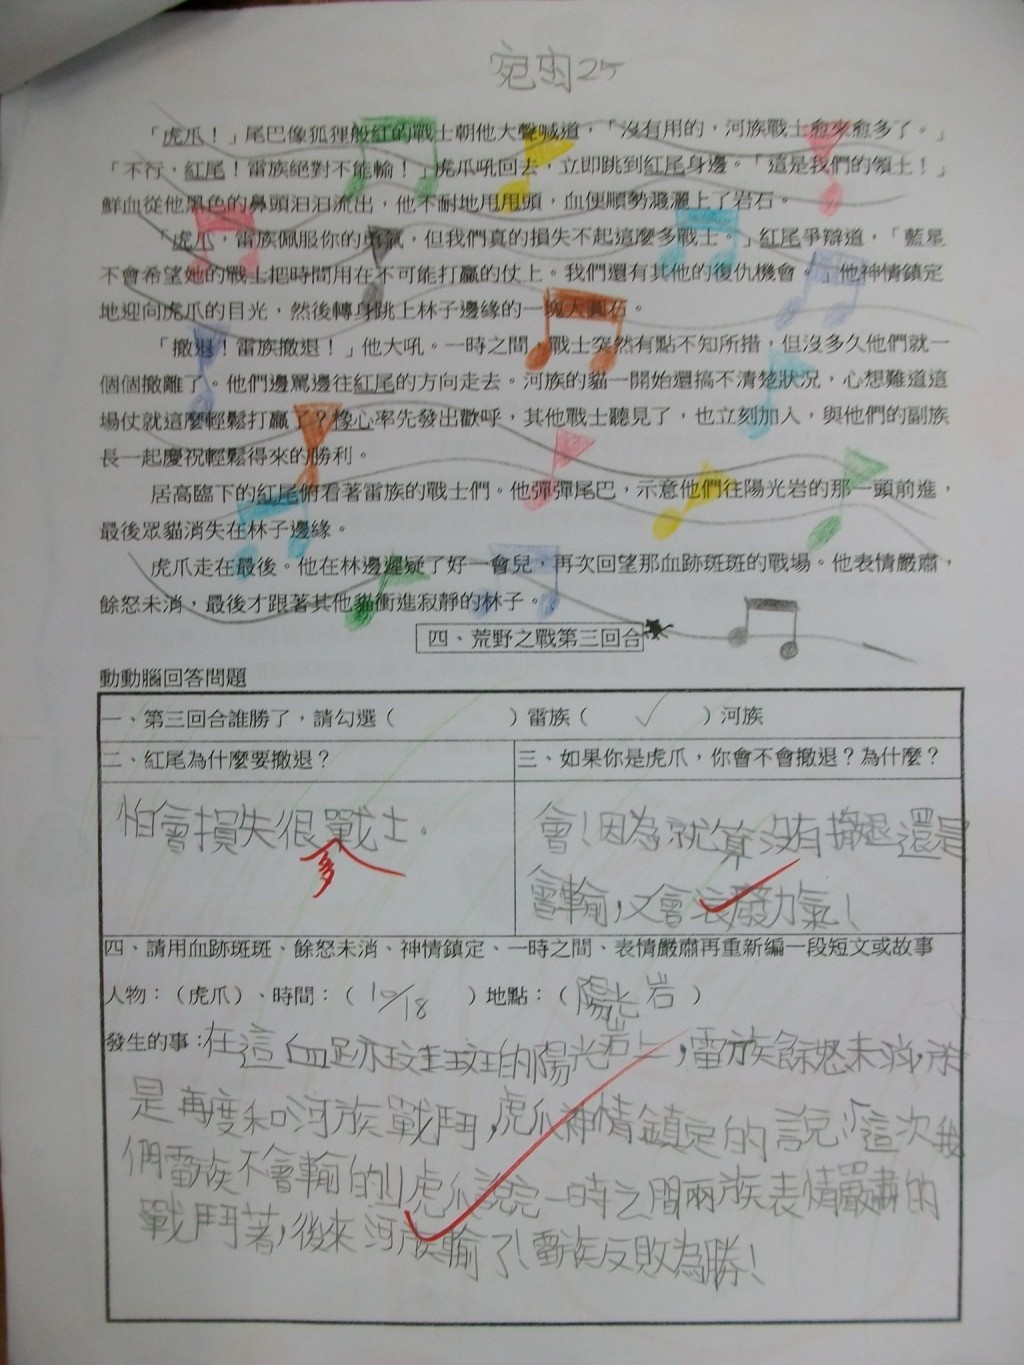 宛囷25
「虎爪！」尾巴像狐狸般紅的戰士朝他大聲喊道，「沒有用的，河族戰士愈來愈多了。」
「不行，紅尾！雷族絕對不能輸！」虎爪吼回去，立即跳到紅尾身邊。「這是我們的領土！」
鮮血從他黑色的鼻頭汩汩流出，他不耐地甩甩頭，血便順勢濺灑上了岩石。
「虎爪，雷族佩服你的勇氣，但我們真的損失不起這麼多戰士。」紅尾爭辯道，「藍星
不會希望她的戰士把時間用在不可能打贏的仗上。我們還有其他的復仇機會。」他神情鎮定
地迎向虎爪的目光，然後轉身跳上林子邊緣的一塊大圓石。
「撤退！雷族撤退！」他大吼。一時之間，戰士突然有點不知所措，但沒多久他們就一
個個撤離了。他們邊罵邊往紅尾的方向走去。河族的貓一開始還搞不清楚狀況，心想難道這
場仗就這麼輕鬆打贏了？橡心率先發出歡呼，其他戰士聽見了，也立刻加入，與他們的副族
長一起慶祝輕鬆得來的勝利。
居高臨下的紅尾俯看著雷族的戰士們。他彈彈尾巴，示意他們往陽光岩的那一頭前進，
最後眾貓消失在林子邊緣。
虎爪走在最後。他在林邊遲疑了好一會兒，再次回望那血跡斑斑的戰場。他表情嚴肅，
餘怒未消，最後才跟著其他貓衝進寂靜的林子。
四、荒野之戰第三回合
動動腦回答問題
一、第三回合誰勝了，請勾選（ ）雷族（ ✓ ）河族
二、紅尾為什麼要撤退？
怕會損失很多戰士。
三、如果你是虎爪，你會不會撤退？為什麼？
會！因為就算沒有撤退還是
會輸，又會浪廢力氣！
四、請用血跡斑斑、餘怒未消、神情鎮定、一時之間、表情嚴肅再重新編一段短文或故事
人物：（虎爪）、時間：（10/18）地點：（陽光岩）
發生的事：在這血跡斑斑的陽光岩上，雷族餘怒未消，於
是再度和河族戰鬥，虎爪神情鎮定的說：「這次我
們雷族不會輸的！」虎爪說完一時之間兩族表情嚴肅的
戰鬥著，後來河族輸了！雷族反敗為勝！